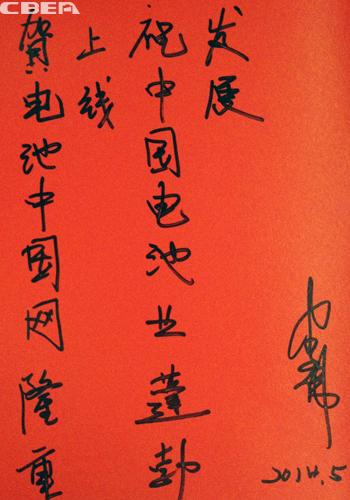 CBEA
賀电池中国网隆重
上线
祝中国电池业蓬勃
发展
2014.5